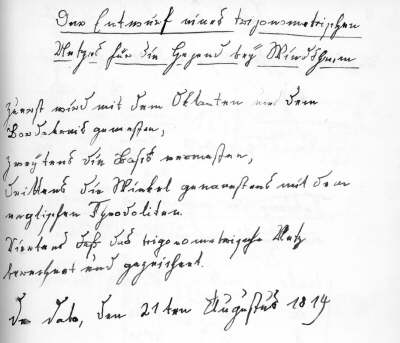 Der Entwurf eines trigonometrischen
Netzes für die Gegend bey Windsheim
Zuerst wird mit dem Oktanten und dem
Bordakreis gemessen,
zweytens die Basis vermessen,
drittens die Winkel genauestens mit dem
englischen Theodoliten.
Viertens daß das trigonometrische Netz
berechnet und gezeichnet.
de dato, den 21ten Augustus 1819